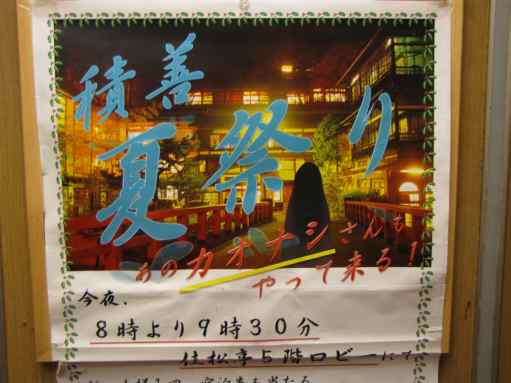 積善
夏祭り
あのカオナシさんも
やって来る!
今夜、
8時より9時30分
佳松亭5階ロビーにて